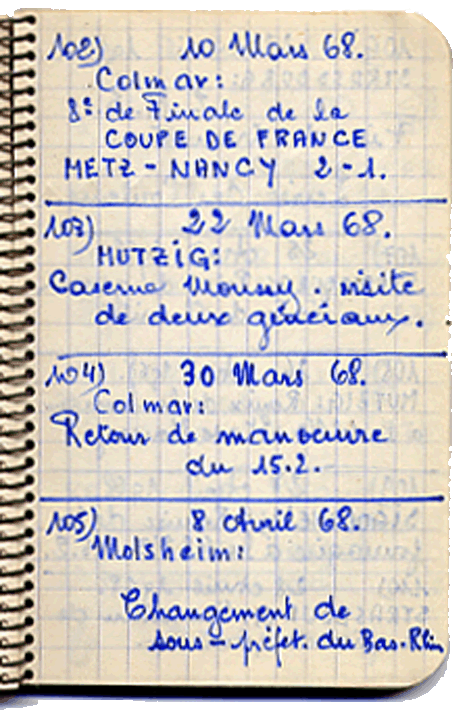 102) 10 Mars 68.
Colmar:
8e de Finale de la
COUPE DE FRANCE
METZ - NANCY 2-1.
103) 22 Mars 68.
MUTZIG:
Caserne Moussy. visite
de deux généraux.
104) 30 Mars 68.
Colmar:
Retour de manoeuvre
du 15.2.
105) 8 Avril 68.
Molsheim:
Changement de
sous-préfet. du Bas-Rhin